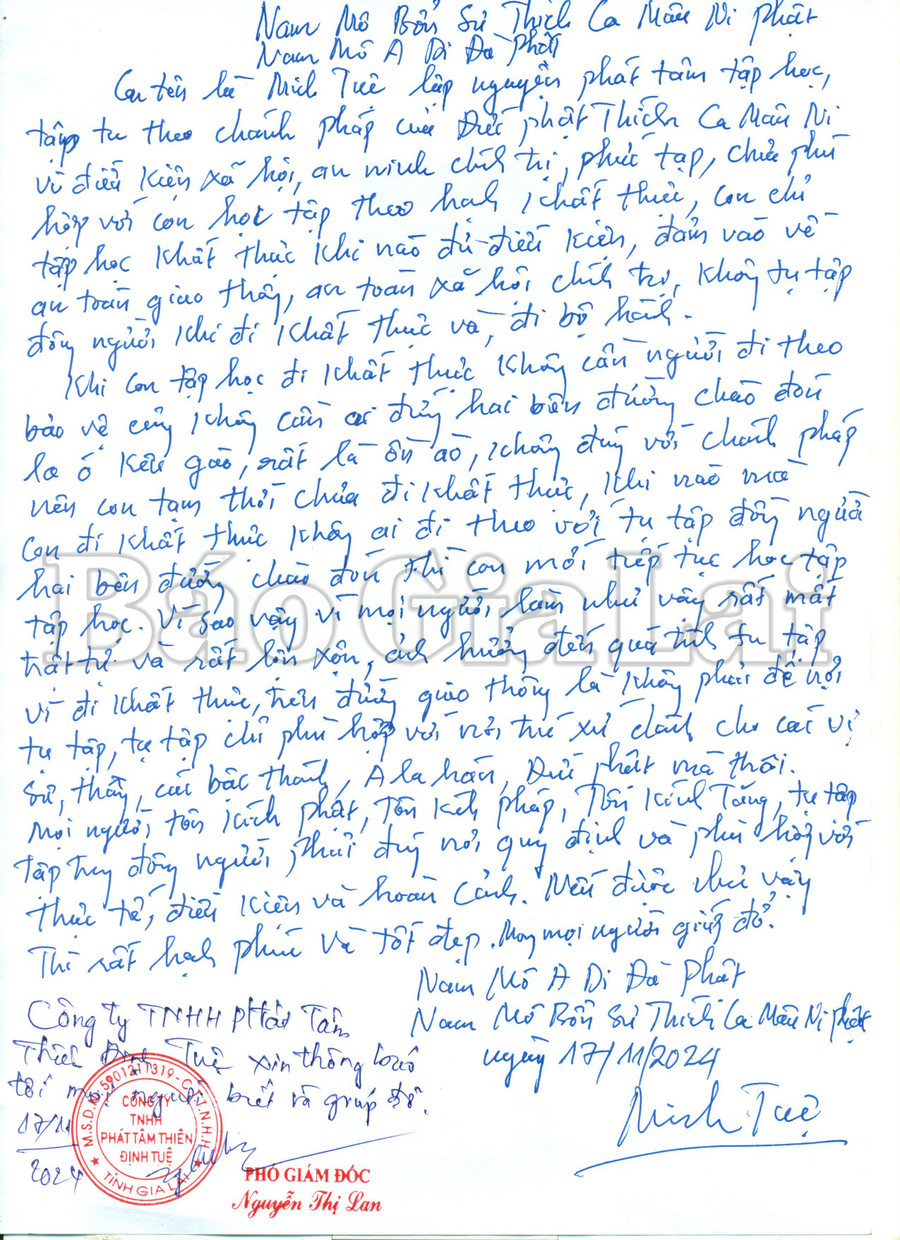 Nam Mô Bổn Sư Thích Ca Mâu Ni Phật
Nam Mô A Di Đà Phật
Con tên là Minh Tuệ lập nguyện phát tâm tập học,
tập tu theo chánh pháp của Đức phật Thích Ca Mâu Ni
vì điều kiện xã hội, an ninh chính trị, phức tạp, chưa phù
hợp với con học tập theo hạnh khất thực, con chỉ
tập học khất thực khi nào đủ điều kiện, đảm vảo về
an toàn giao thông, an toàn xã hội chính trị, không tụ tập
đông người khi đi khất thực và, đi bộ hành.
Khi con tập học đi khất thực không cần người đi theo
bảo vệ cũng không cần ai đứng hai bên đường chào đón
la ó kêu gào, rất là ồn ào, không đúng với chánh pháp
nên con tạm thời chưa đi khất thực, khi nào mà
con đi khất thực không ai đi theo với tụ tập đông người
hai bên đường chào đón thì con mới tiếp tục học tập
tập học. Vì sao vậy vì mọi người làm như vậy rất mất
trật tự và rất lộn xộn, ảnh hưởng đến quá trình tu tập
vì đi khất thực, trên đường giao thông là không phải để nơi
tụ tập, tụ tập chỉ phù hợp với nơi trú xứ dành cho các vị
sư, thầy, các bậc thánh, A la hán, Đức phật mà thôi.
Mọi người tôn kính phật, Tôn kính pháp, Tôn kính Tăng, tụ tập
tập trung đông người phải đúng nơi quy định và phù hợp với
thực tế, điều kiện và hoàn cảnh. Nếu được như vậy
Thì rất hạnh phúc và tốt đẹp. Mong mọi người giúp đỡ.
Nam Mô A Di Đà Phật
Nam Mô Bổn Sư Thích Ca Mâu Ni phật
ngày 17/11/2024
Minh Tuệ
Công ty TNHH Phát Tâm
Thiền Định Tuệ xin thông báo
tới mọi người biết và giúp đỡ.
17/11
2024
M.S.D.N: 5901211319 - C.T.T.N.H.H
CÔNG TY
TNHH
PHÁT TÂM THIÊN
ĐỊNH TUỆ
TỈNH GIA LAI
PHÓ GIÁM ĐỐC
Nguyễn Thị Lan
Báo Gia Lai